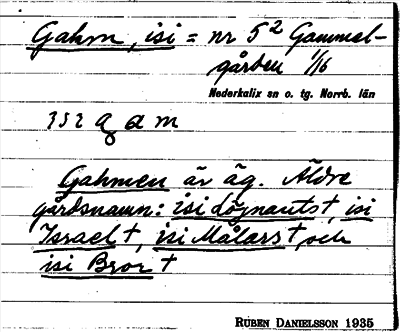 Gahm, isi = nr 5² Gammel-
gården 1/16
Nederkalix sn o. tg. Norrb. län
352 a m
Gahmen är äg. Äldre
gårdsnamn: isi löjnants†, isi
Israel†, isi Målars†, och
isi Bror†
RUBEN DANIELSSON 1935